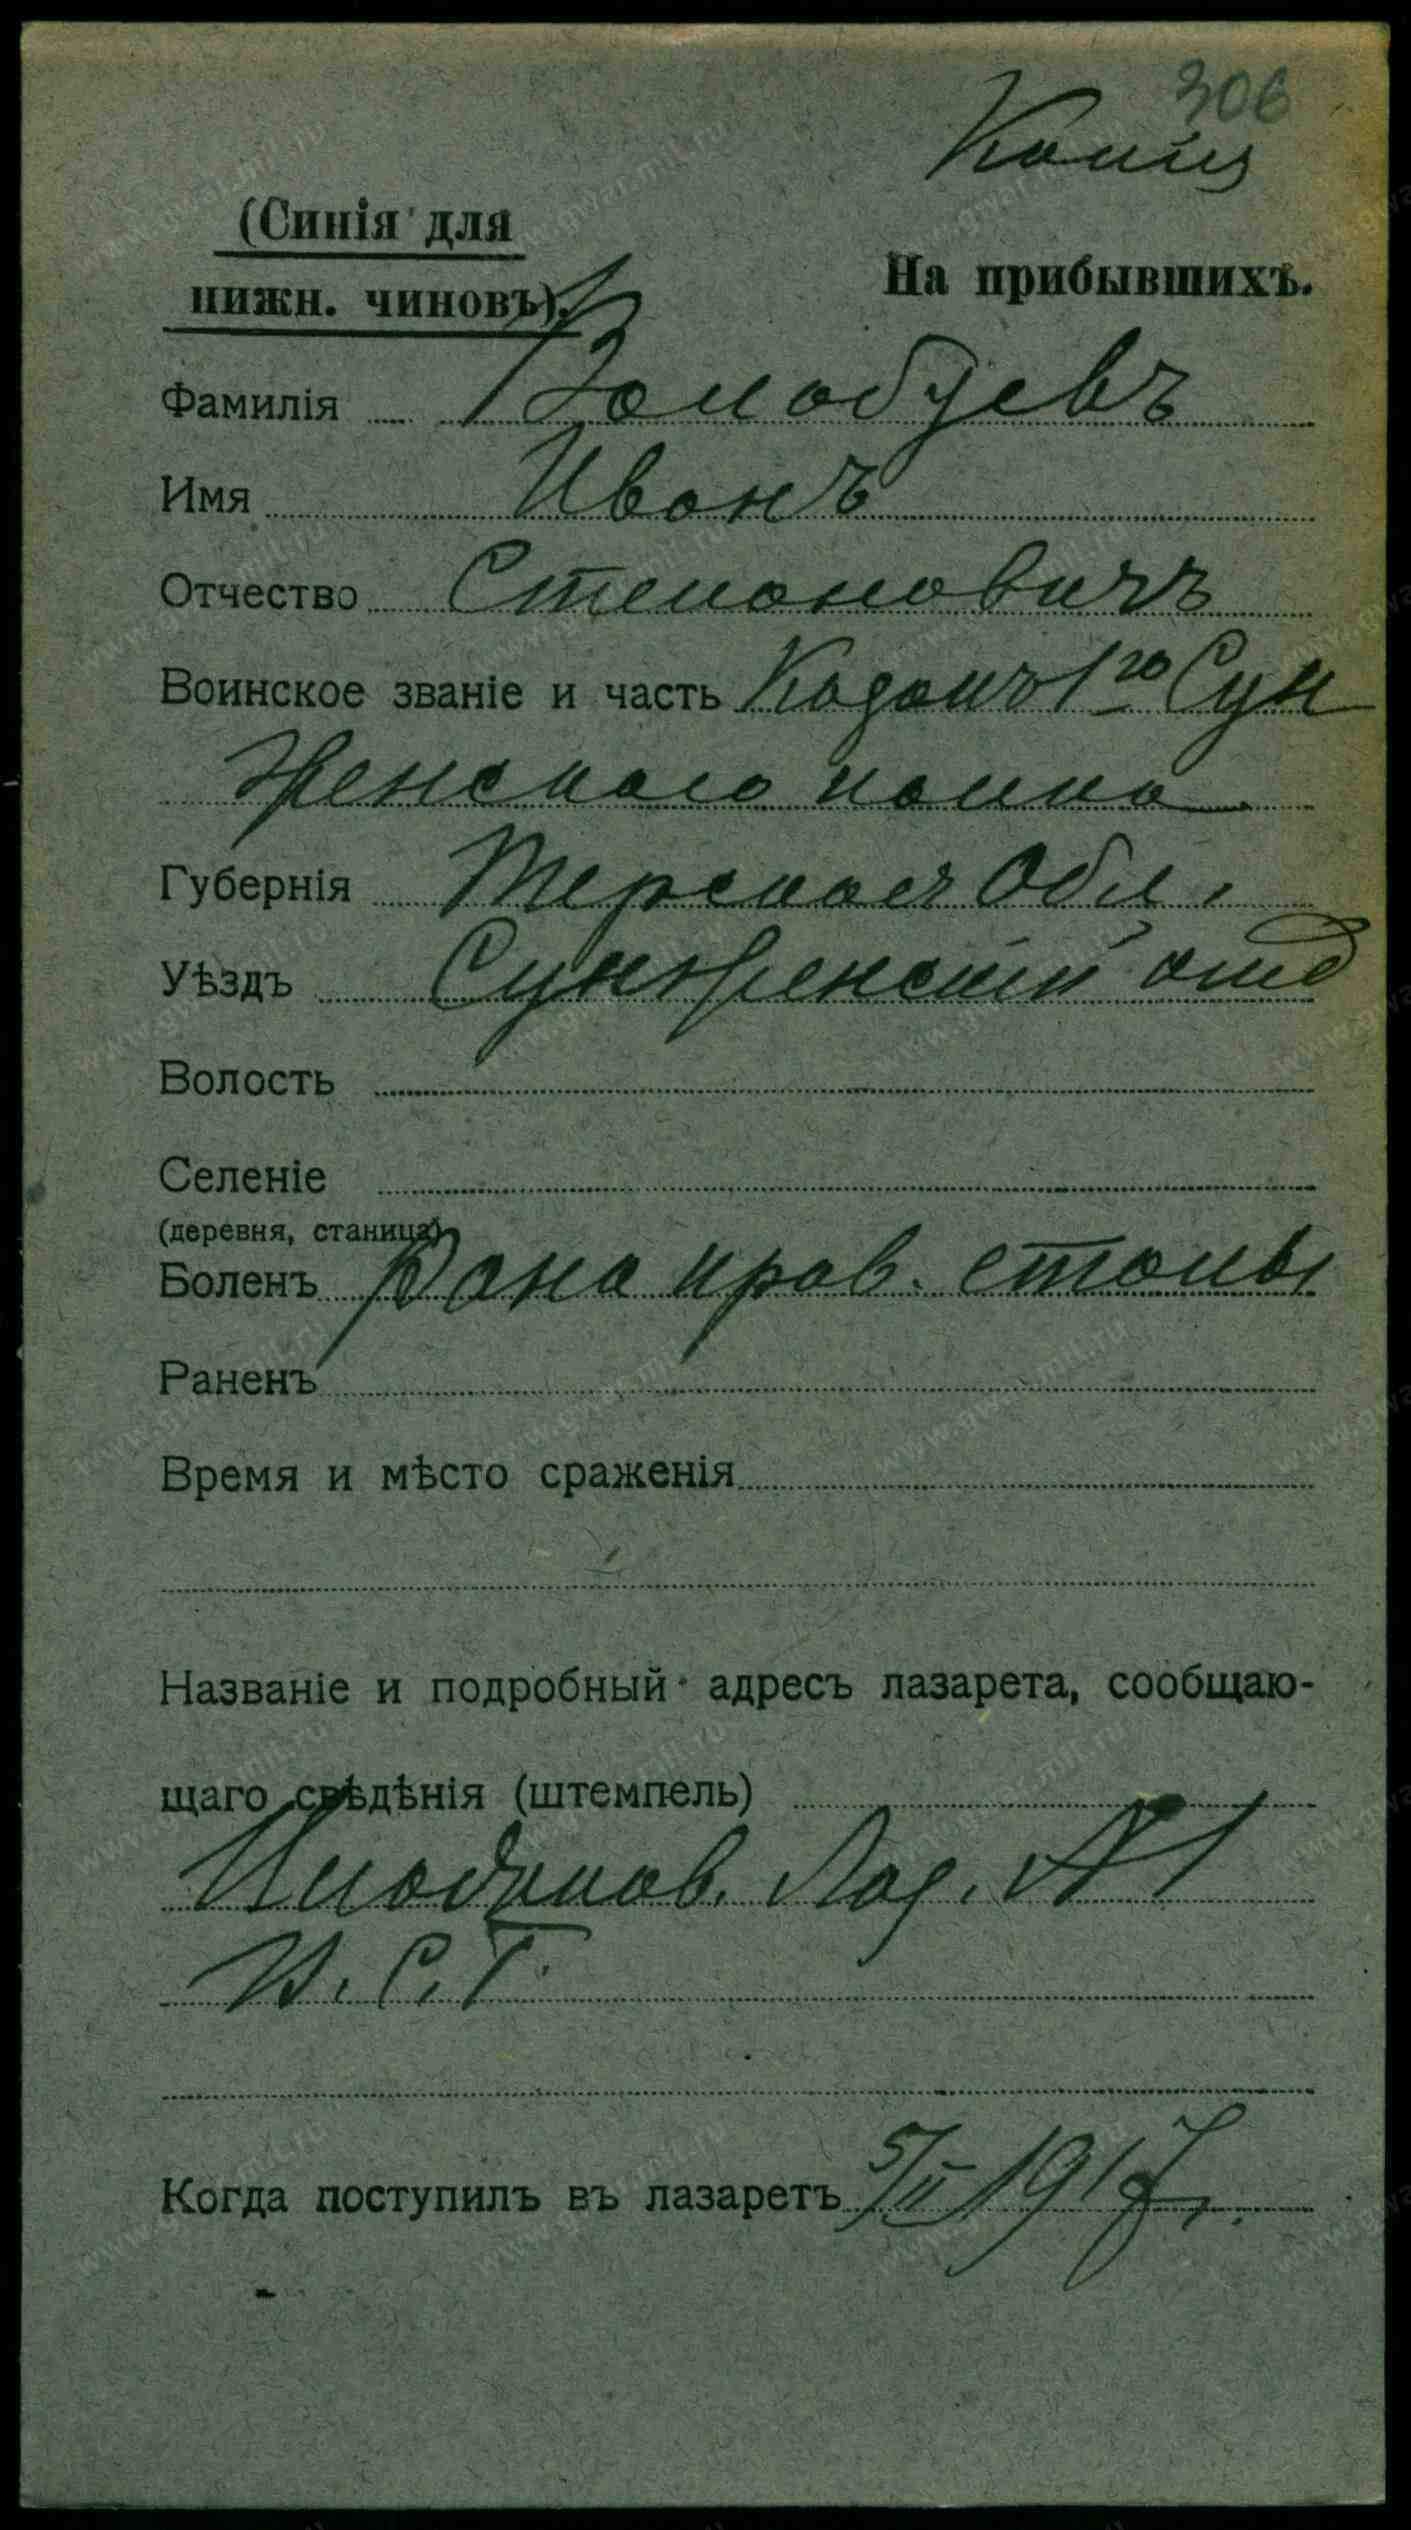 306
Копія
(Синія для
нижн. чиновъ).
На прибывшихъ.
Фамилія Волобуевъ
Имя Иванъ
Отчество Степановичъ
Воинское званіе и часть Казакъ 1го Сун
женскаго полка
Губернія Терская Обл.
Уѣздъ Сунженскій отд
Волость
Селеніе
(деревня, станица)
Боленъ Рана прав. стопы
Раненъ
Время и мѣсто сраженія
Названіе и подробный адресъ лазарета, сообщаю-
щаго свѣдѣнія (штемпель)
Лаз. №1
В. С. Г.
Когда поступилъ въ лазаретъ 5/II 1917 г.